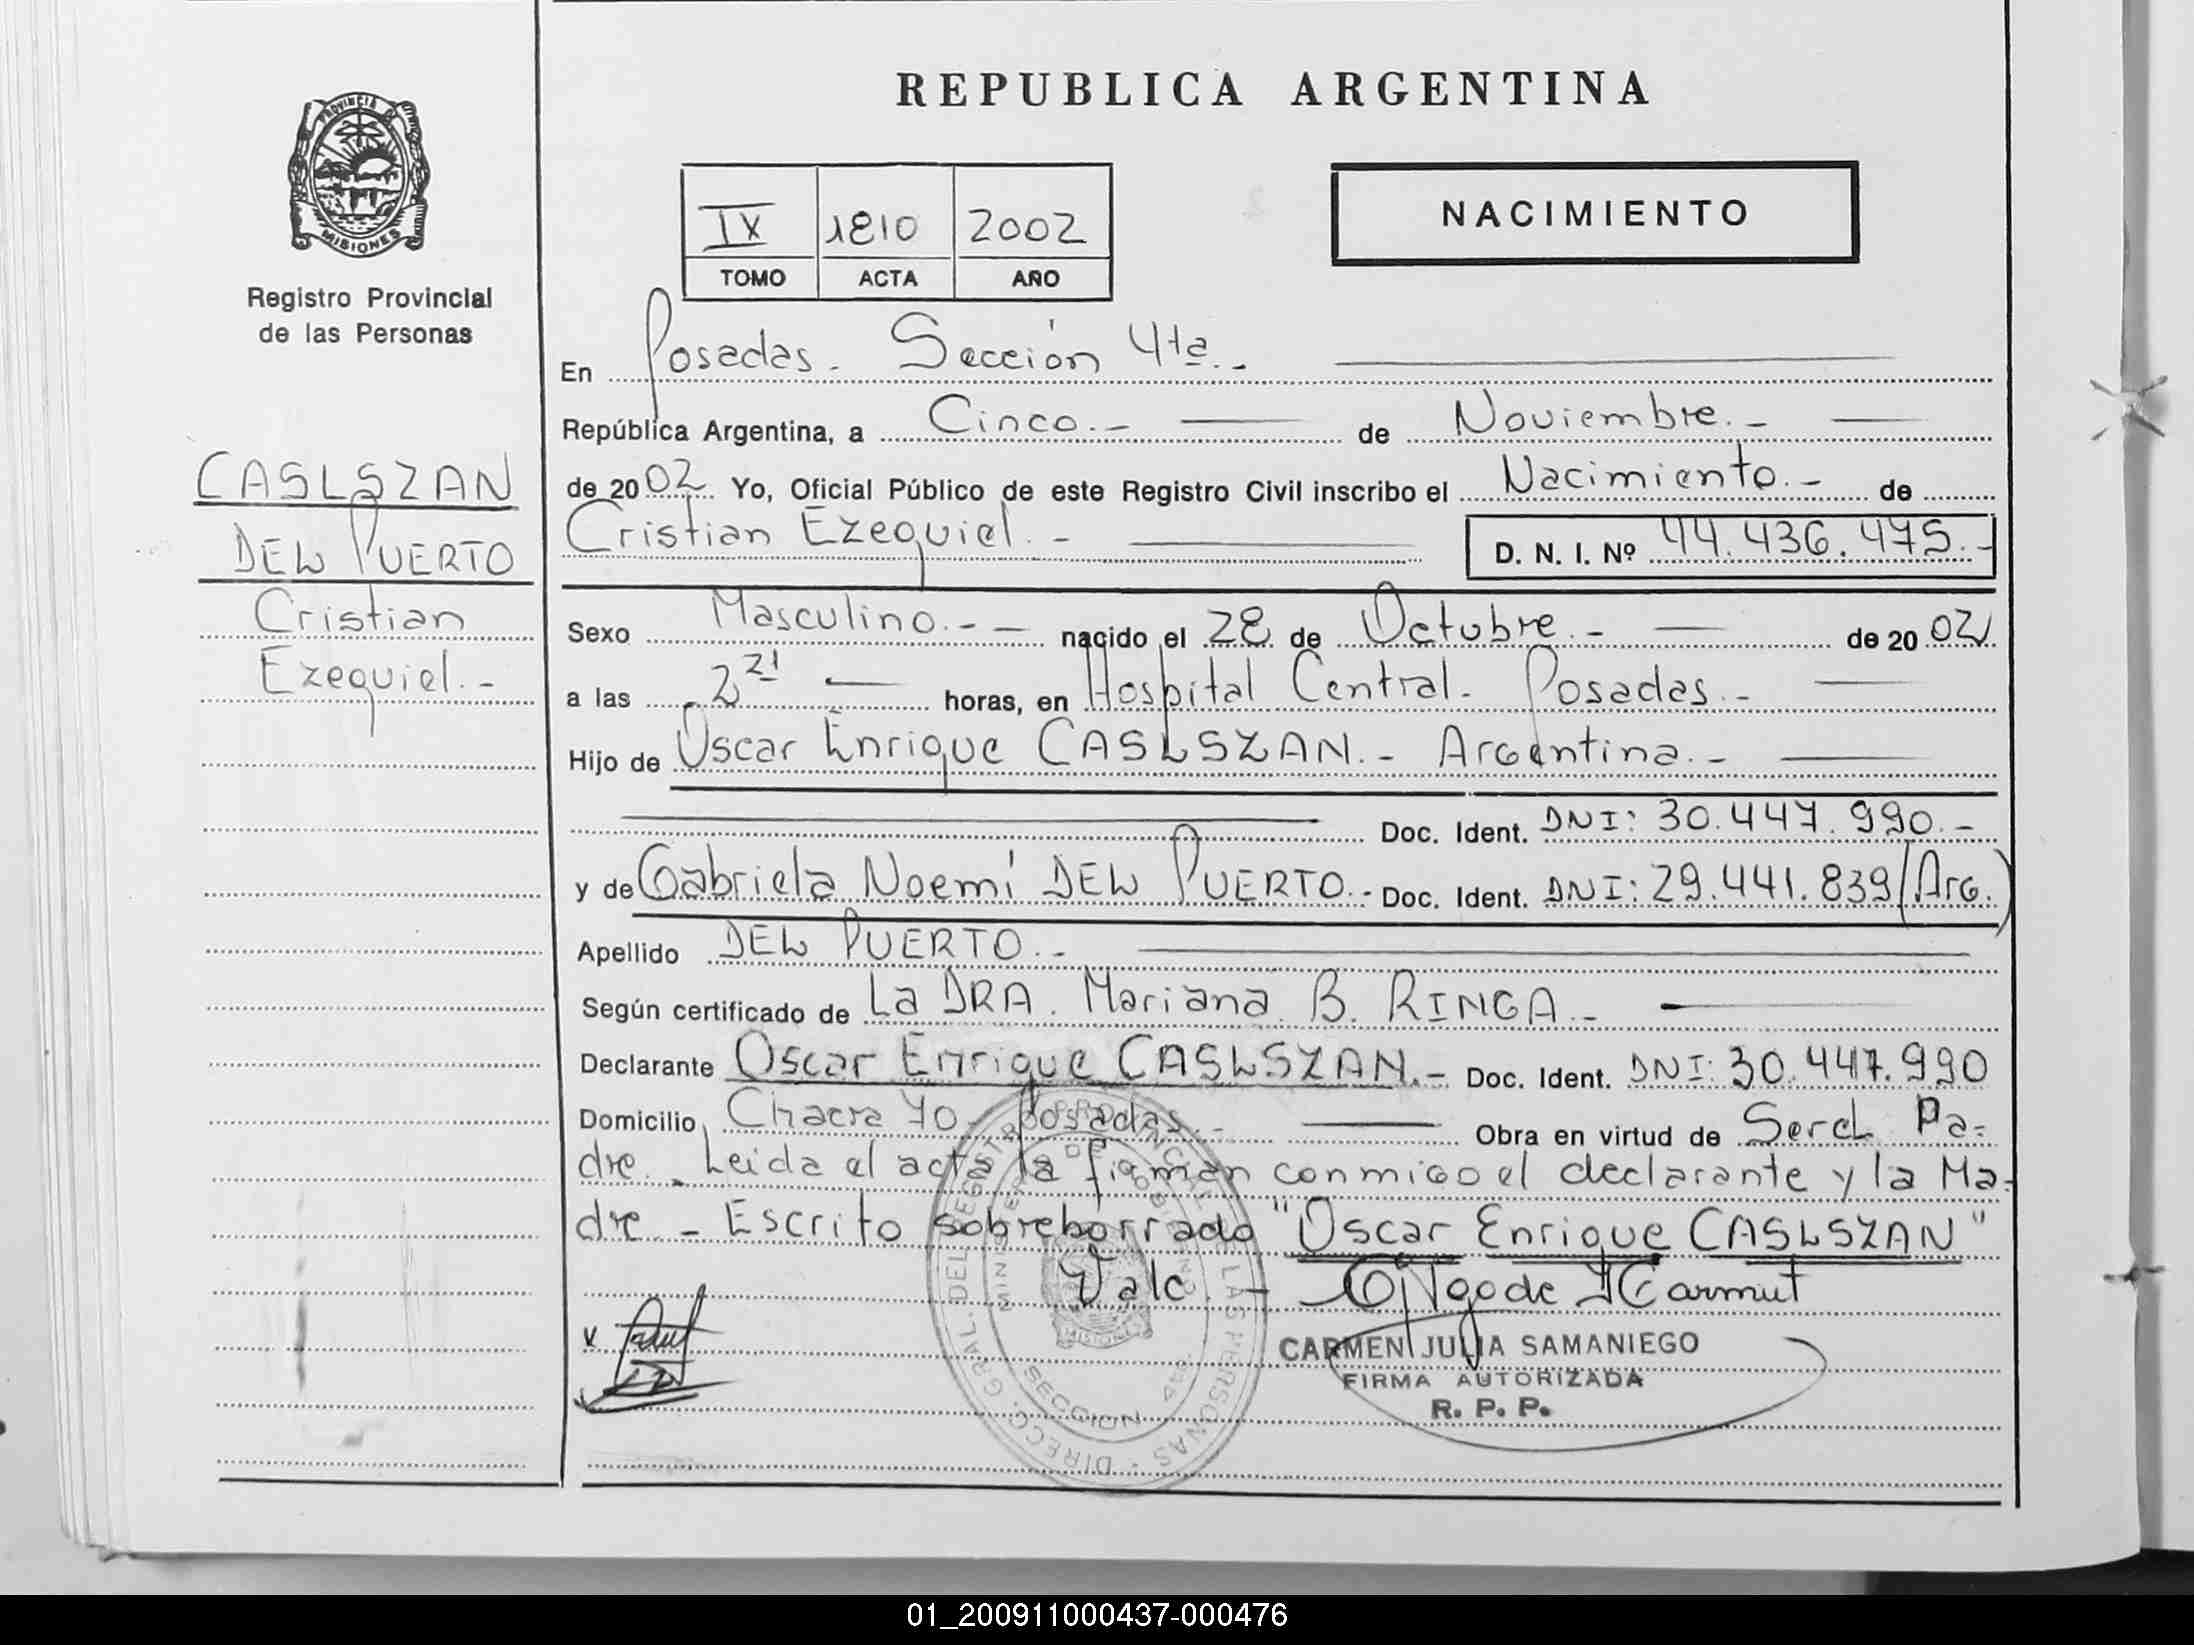 REPUBLICA ARGENTINA
PROVINCIA DE
MISIONES
Registro Provincial
de las Personas
IX 1810 2002
TOMO ACTA AÑO
NACIMIENTO
CASLSZAN
DEL PUERTO
Cristian
Ezequiel.-
En Posadas. Sección 4ta.-
República Argentina, a Cinco.- de Noviembre.-
de 2002 Yo, Oficial Público de este Registro Civil inscribo el Nacimiento.- de
Cristian Ezequiel.- D. N. I. Nº 44.436.475.-
Sexo Masculino.-- nacido el 28 de Octubre.- de 2002
a las 2 21 horas, en Hospital Central. Posadas.-
Hijo de Oscar Enrique CASLSZAN.- Argentina.-
Doc. Ident. DNI: 30.447.990.-
y de Gabriela Noemí DEL PUERTO.- Doc. Ident. DNI: 29.441.839 (Arg.)
Apellido DEL PUERTO.-
Según certificado de La DRA. Mariana B. RINGA.-
Declarante Oscar Enrique CASLSZAN.- Doc. Ident. DNI: 30.447.990
Domicilio Chacra 70 - Posadas.- Obra en virtud de Ser el Pa-
dre.- Leida el acta la firman conmigo el declarante y la Ma-
dre - Escrito sobreborrado "Oscar Enrique CASLSZAN"
Vale.-
CARMEN JULIA SAMANIEGO
FIRMA AUTORIZADA
R. P. P.
DIRECC. GRAL. DEL REGISTRO PROVINCIAL DE LAS PERSONAS
MINISTERIO DE GOBIERNO
MISIONES
SECCION 4ta.
01_200911000437-000476